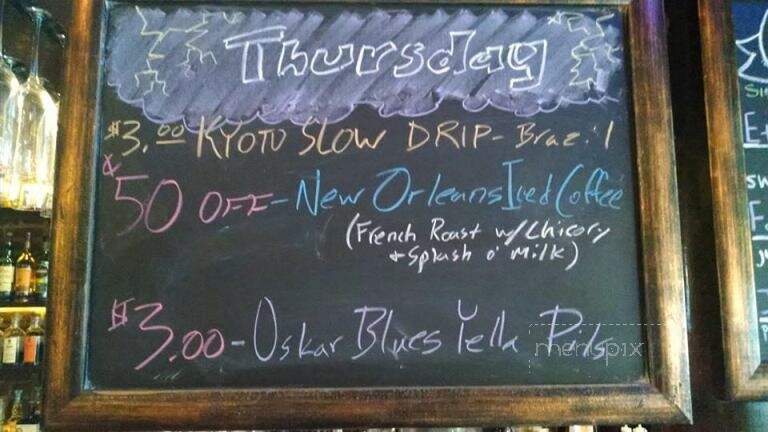 Thursday
$3.00 KYOTO SLOW DRIP - Brazil
50 OFF - New Orleans Iced Coffee
(French Roast w/ Chicory
+ Splash o' Milk)
$3.00 - Oskar Blues Yella Pils
menuspix